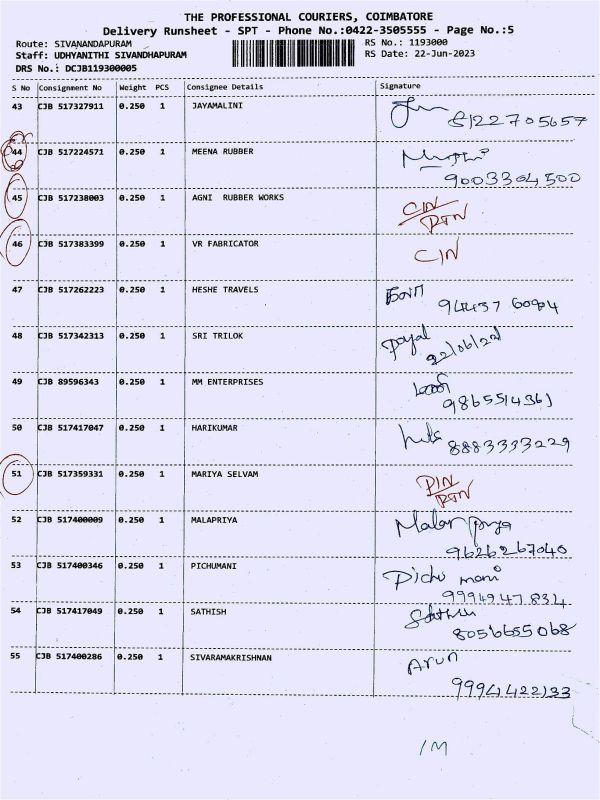 THE PROFESSIONAL COURIERS, COIMBATORE
Delivery Runsheet - SPT - Phone No.:0422-3505555 - Page No.:5
Route: SIVANANDAPURAM RS No.: 1193000
Staff: UDHYANITHI SIVANDHAPURAM RS Date: 22-Jun-2023
DRS No.: DCJB119300005
S No Consignment No Weight PCS Consignee Details Signature
43 CJB 517327911 0.250 1 JAYAMALINI
8122705657
44 CJB 517224571 0.250 1 MEENA RUBBER
9003304500
45 CJB 517238003 0.250 1 AGNI RUBBER WORKS CIN
RTN
46 CJB 517383399 0.250 1 VR FABRICATOR CIN
47 CJB 517262223 0.250 1 HESHE TRAVELS
48 CJB 517342313 0.250 1 SRI TRILOK payal
49 CJB 89596343 0.250 1 MM ENTERPRISES
9865514361
50 CJB 517417047 0.250 1 HARIKUMAR
8883333229
51 CJB 517359331 0.250 1 MARIYA SELVAM DIN
RTN
52 CJB 517400009 0.250 1 MALAPRIYA Malar priya
9626267040
53 CJB 517400346 0.250 1 PICHUMANI Pichu mani
9994947834
54 CJB 517417049 0.250 1 SATHISH
8056655068
55 CJB 517400286 0.250 1 SIVARAMAKRISHNAN Arun
9994422133
1M